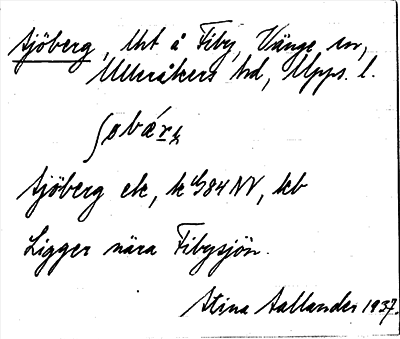 Sjöberg, Uht å Fiby, Vänge sn,
Ulleråkers hd, Upps. l.
Sjöberg ek, k 84 NV, kb
Ligger nära Fibysjön.
Stina Aallander 1937.